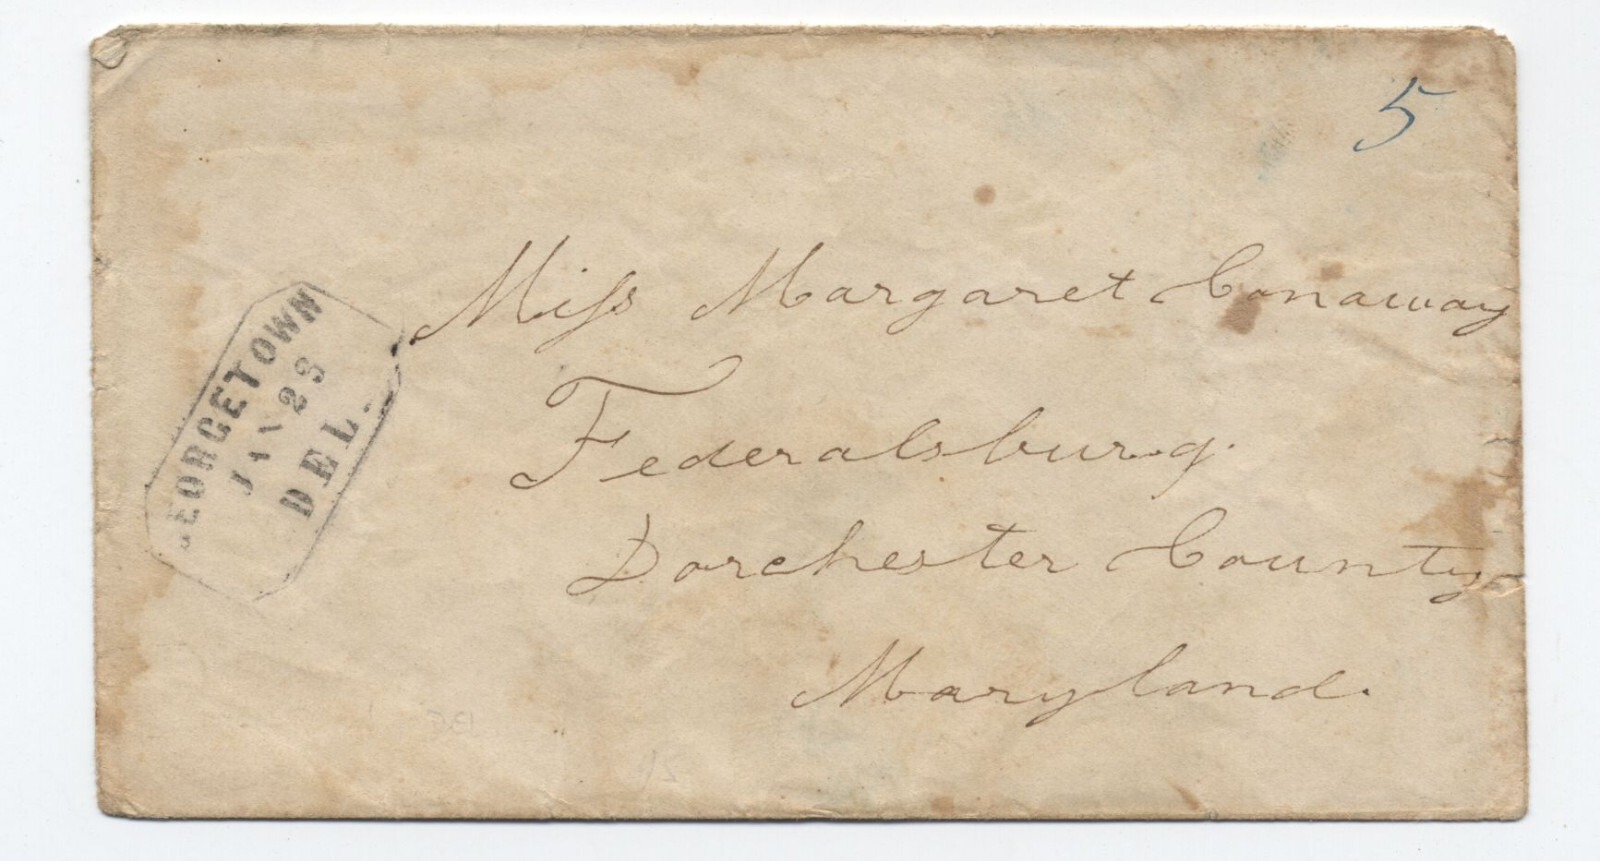 5
Miss Margaret Conaway
Federalsburg.
Dorchester County
Maryland.
GEORGETOWN
JAN 28
DEL.